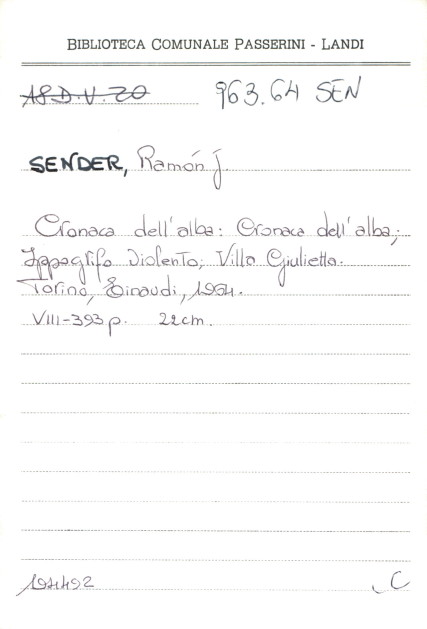 BIBLIOTECA COMUNALE PASSERINI - LANDI
A8.D.V.20 963.64 SEN
SENDER, Ramón J.
Cronaca dell'alba: Cronaca dell'alba;
Ippogrifo violento; Villa Giulietta.
Torino, Einaudi, 1964.
VIII-393 p. 22 cm.
194492 C